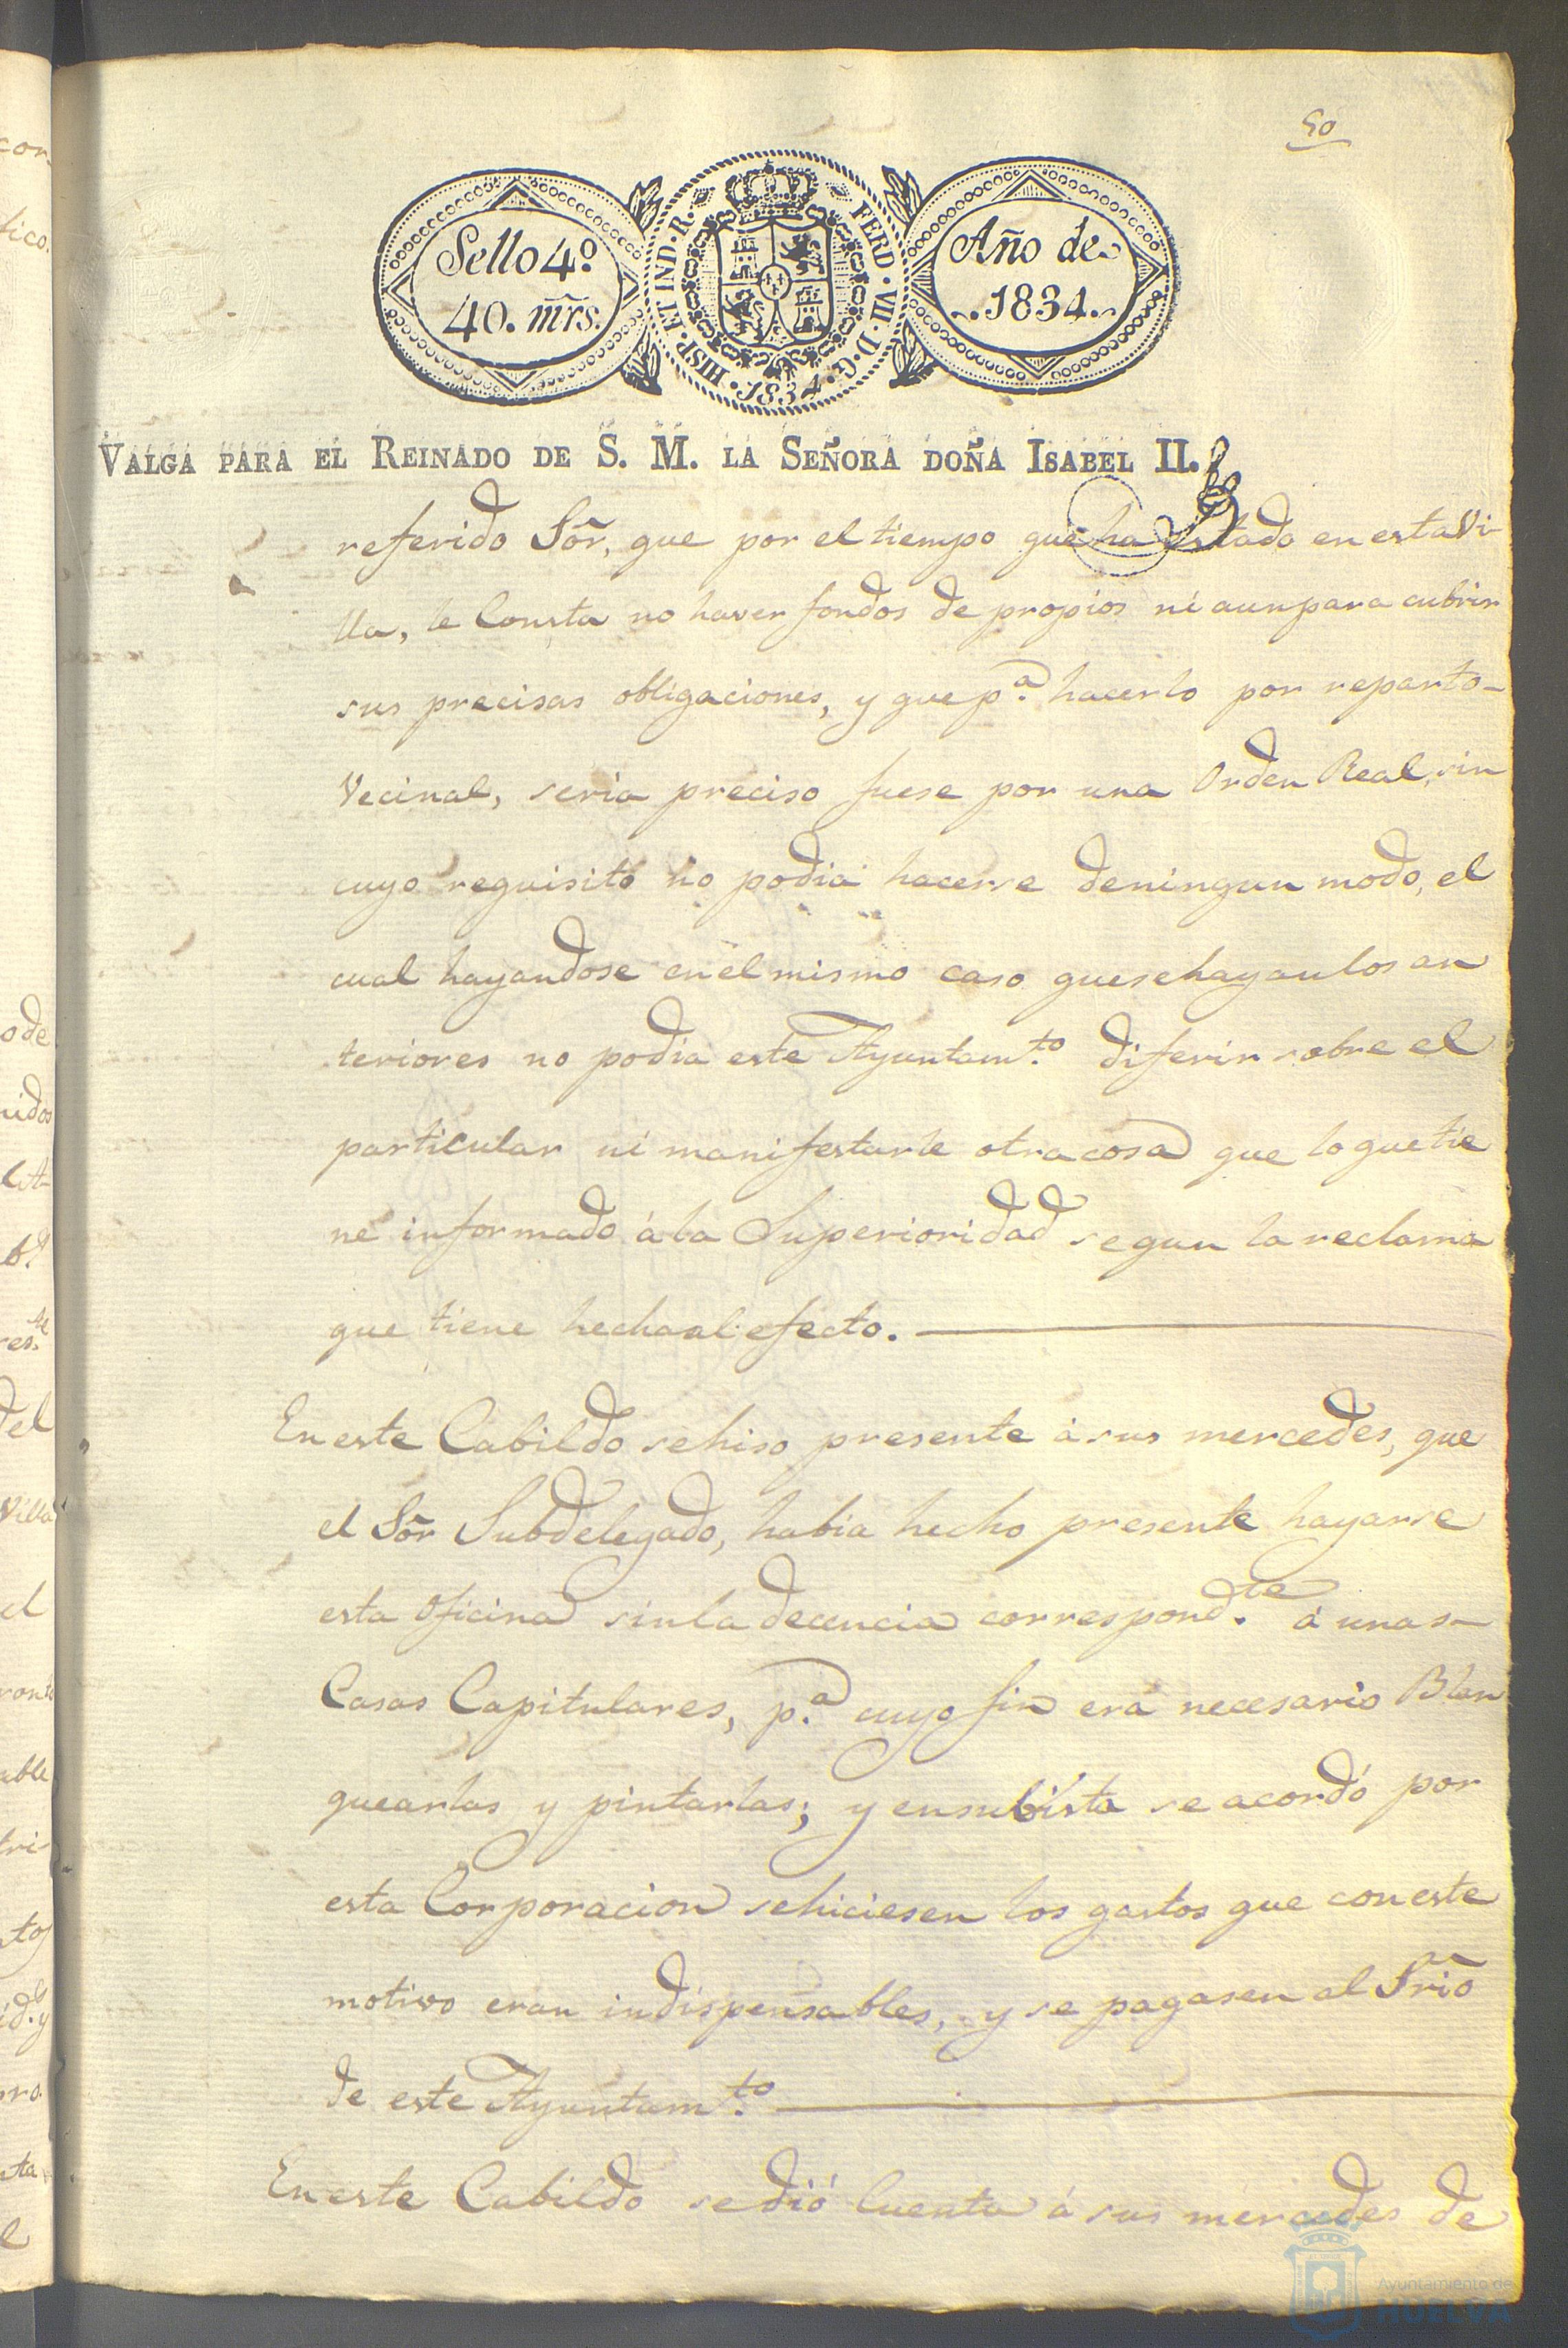 50
Sello 4º
40. mrs.
HISP. ET IND. R. FERD. VII. D. G. 1834.
Año de
1834.
VALGA PARA EL REINADO DE S. M. LA SEÑORA DOÑA ISABEL II.
referido Sõr, que por el tiempo que ha estado en esta Vi-
lla, le Consta no haver fondos de propios ni aun para cubrir
sus precisas obligaciones, y que pª. hacerlo por reparto-
Vecinal, seria preciso fuese por una Orden Real, sin
cuyo requisito no podia hacerse de ningun modo, el
cual hayandose en el mismo caso que se hayan los an
teriores no podia este Ayuntamto. diferir sobre el
particular ni manifestarle otra cosa que lo que tie
ne informado á la Superioridad segun la reclama
que tiene hecha al efecto.
En este Cabildo se hiso presente á sus mercedes, que
el Sõr Subdelegado, habia hecho presente hayarse
esta Oficina sin la decencia correspondte. á unas
Casas Capitulares, pª. cuyo fin era necesario Blan
quearlas y pintarlas; y en su bista se acordó por
esta Corporacion se hiciesen los gastos que con este
motivo eran indispensables, y se pagasen al Srio
de este Ayuntamto.
En este Cabildo se dió Cuenta á sus mercedes de
Ayuntamiento de
HUELVA